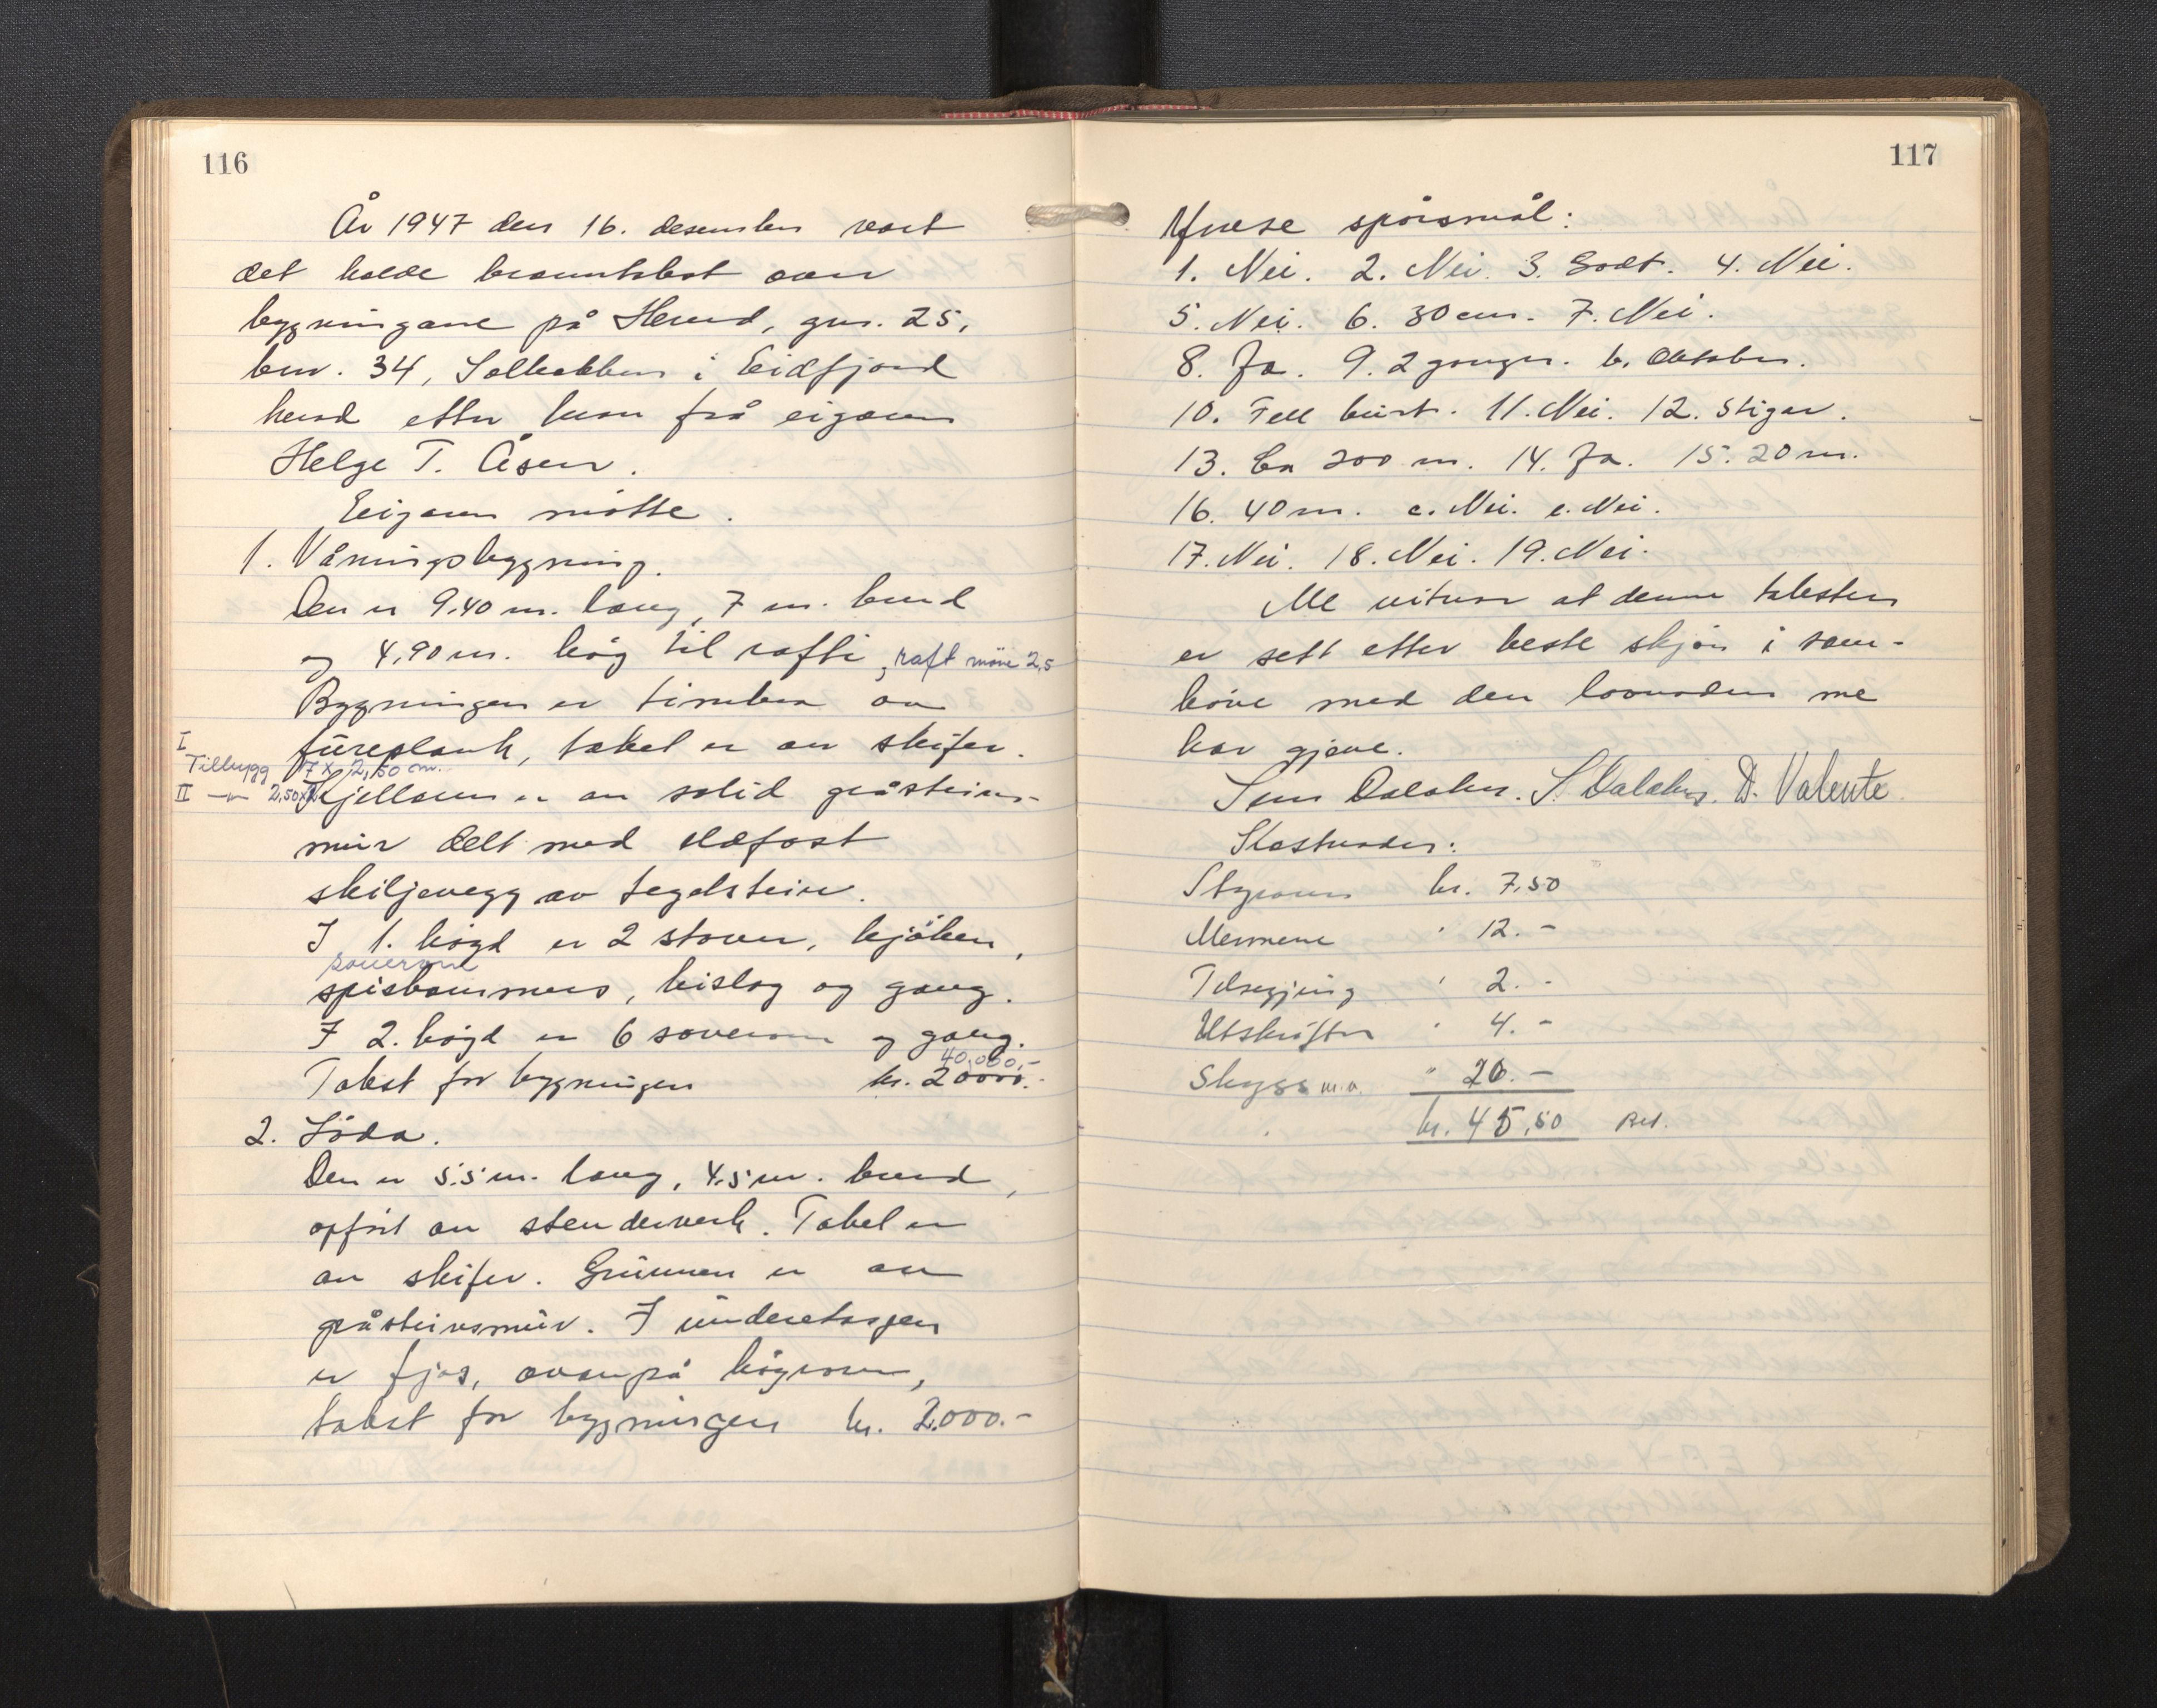 116
År 1947 den 16. desember vart
det halde branntakst over
bygningane på Hereid, gnr. 25,
bnr. 34, Solbakken i Eidfjord
herad etter krav frå eigaren
Helge T. Åsen.
Eigaren møtte.
1. Våningsbygning.
Den er 9,40 m. lang, 7 m. breid
og 4,90 m. høg til rafti, raft møne 2,5
Bygningen er timbra av
I
fureplank, taket er av skifer.
Tilbygg 7 x 2,50 m.
II 2,50x2
Kjellaren er av solid gråsteins-
mur delt med eldfast
skiljevegg av tegelstein.
I 1. høgd er 2 stover, kjøken,
soverom
spiskammers, bislag og gang.
I 2. høgd er 6 soverom og gang.
40,000,-
Takst for bygningen kr. 20000.-
2. Löda.
Den er 5.5 m. lang, 4.5 m. breid,
opført av stenderverk. Taket er
av skifer. Grunnen er av
gråsteinsmur. I underetasjen
er fjøs, ovanpå høyrom,
takst for bygningen kr. 2.000.-
117
Ymese spørsmål:
1. Nei. 2. Nei. 3. Godt. 4. Nei.
5. Nei. 6. 30 cm. 7. Nei.
8. Ja. 9. 2 gonger. b. Oktober.
10. Fell burt. 11. Nei. 12. Stigar.
13. Ca 200 m. 14. Ja. 15. 20 m.
16. 40 m. c. Nei. e. Nei.
17. Nei. 18. Nei. 19. Nei.
Me vitnar at denne taksten
er sett etter beste skjøn i sam-
høve med den lovnaden me
har gjeve.
Dalaker. S. Dalaker. D. Valente
Kostnader:
Styraren kr. 7,50
Mennene " 12.-
Tilsegjing " 2.-
Utskrifter " 4.-
Skyss m.v. " 20.-
kr. 45,50 Bet.